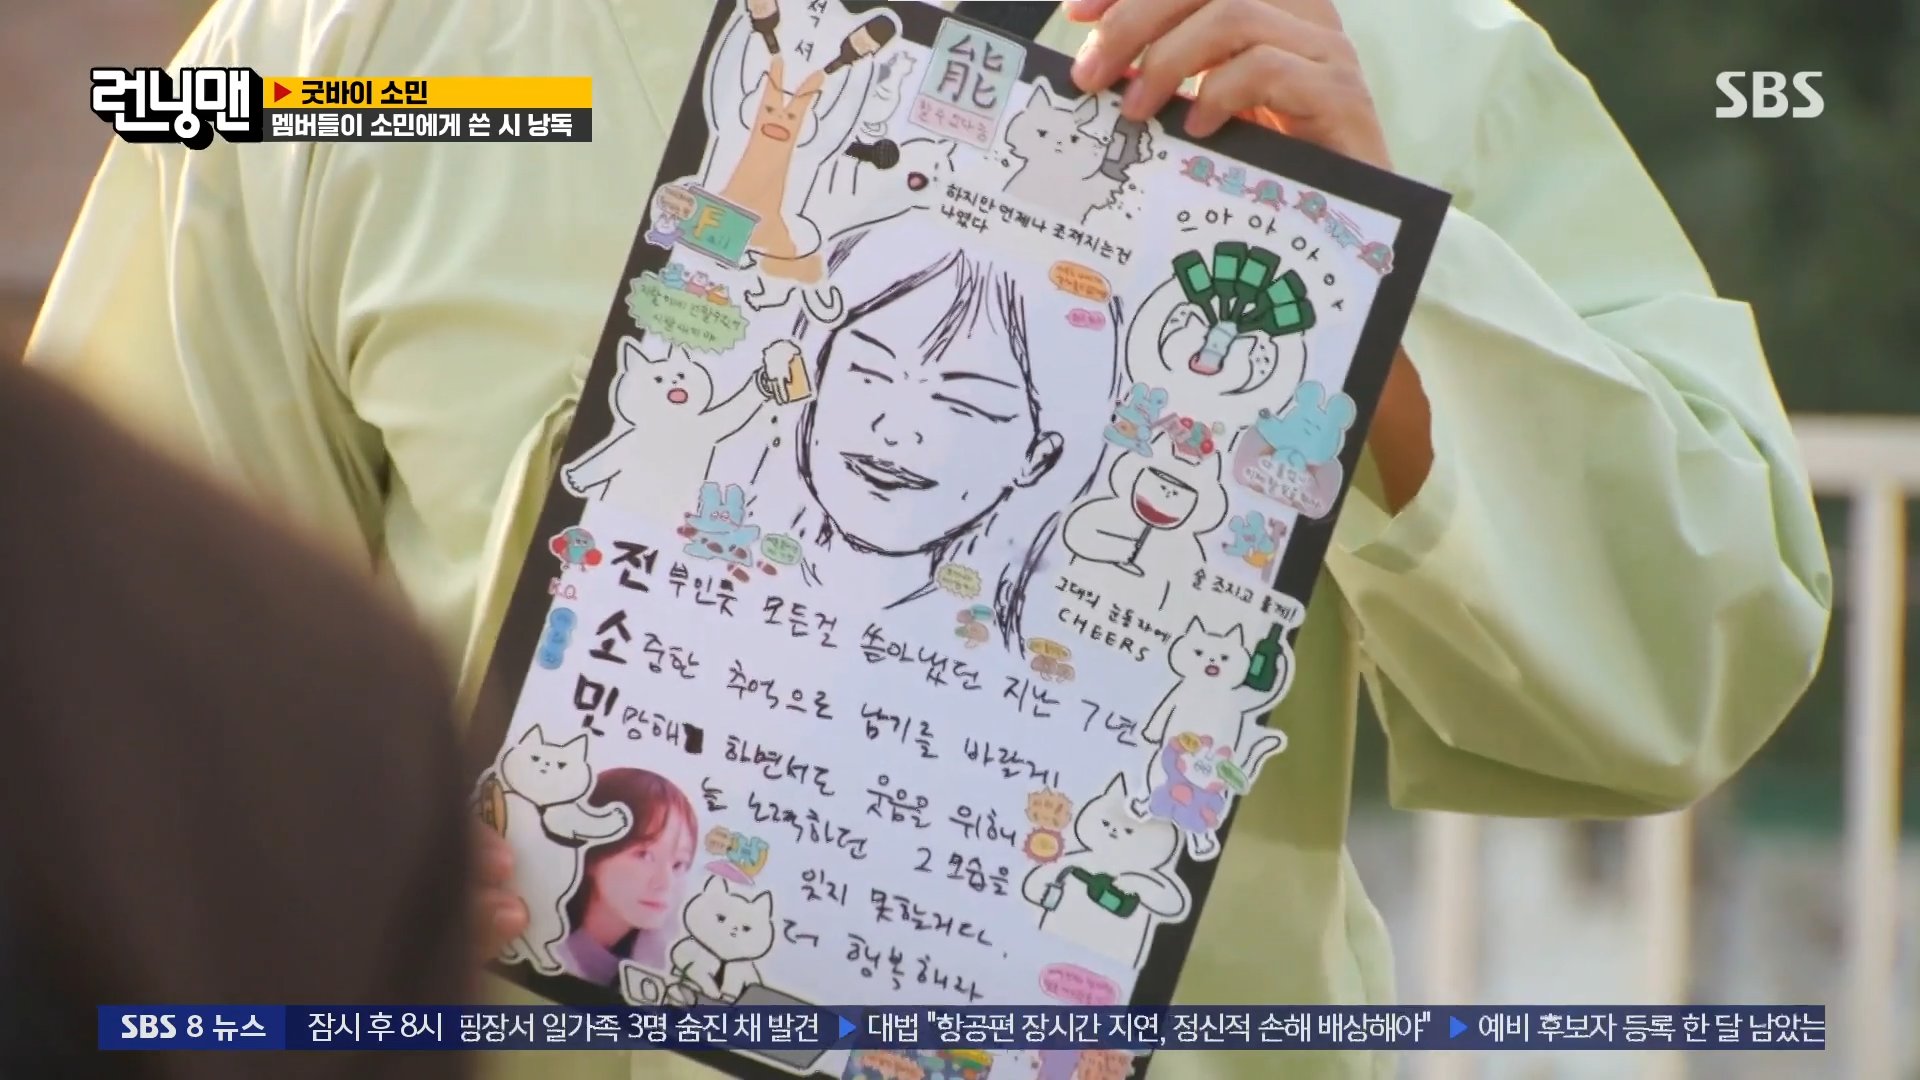 런닝맨
굿바이 소민
멤버들이 소민에게 쓴 시 낭독
SBS
석
셔
能
할 수 있다능
하지만 언제나 조져지는건
나였다
으아아아
Fail
술 조지고 올게!
그대의 눈동자에
CHEERS
K.O.
전부인듯 모든걸 쏟아냈던 지난 7년
소중한 추억으로 남기를 바랄게
민망해 하면서도 웃음을 위해
늘 노력하던 그 모습을
잊지 못할거다.
더 행복해라
SBS 8 뉴스 잠시 후 8시 핑장서 일가족 3명 숨진 채 발견 ▶ 대법 "항공편 장시간 지연, 정신적 손해 배상해야" ▶ 예비 후보자 등록 한 달 남았는